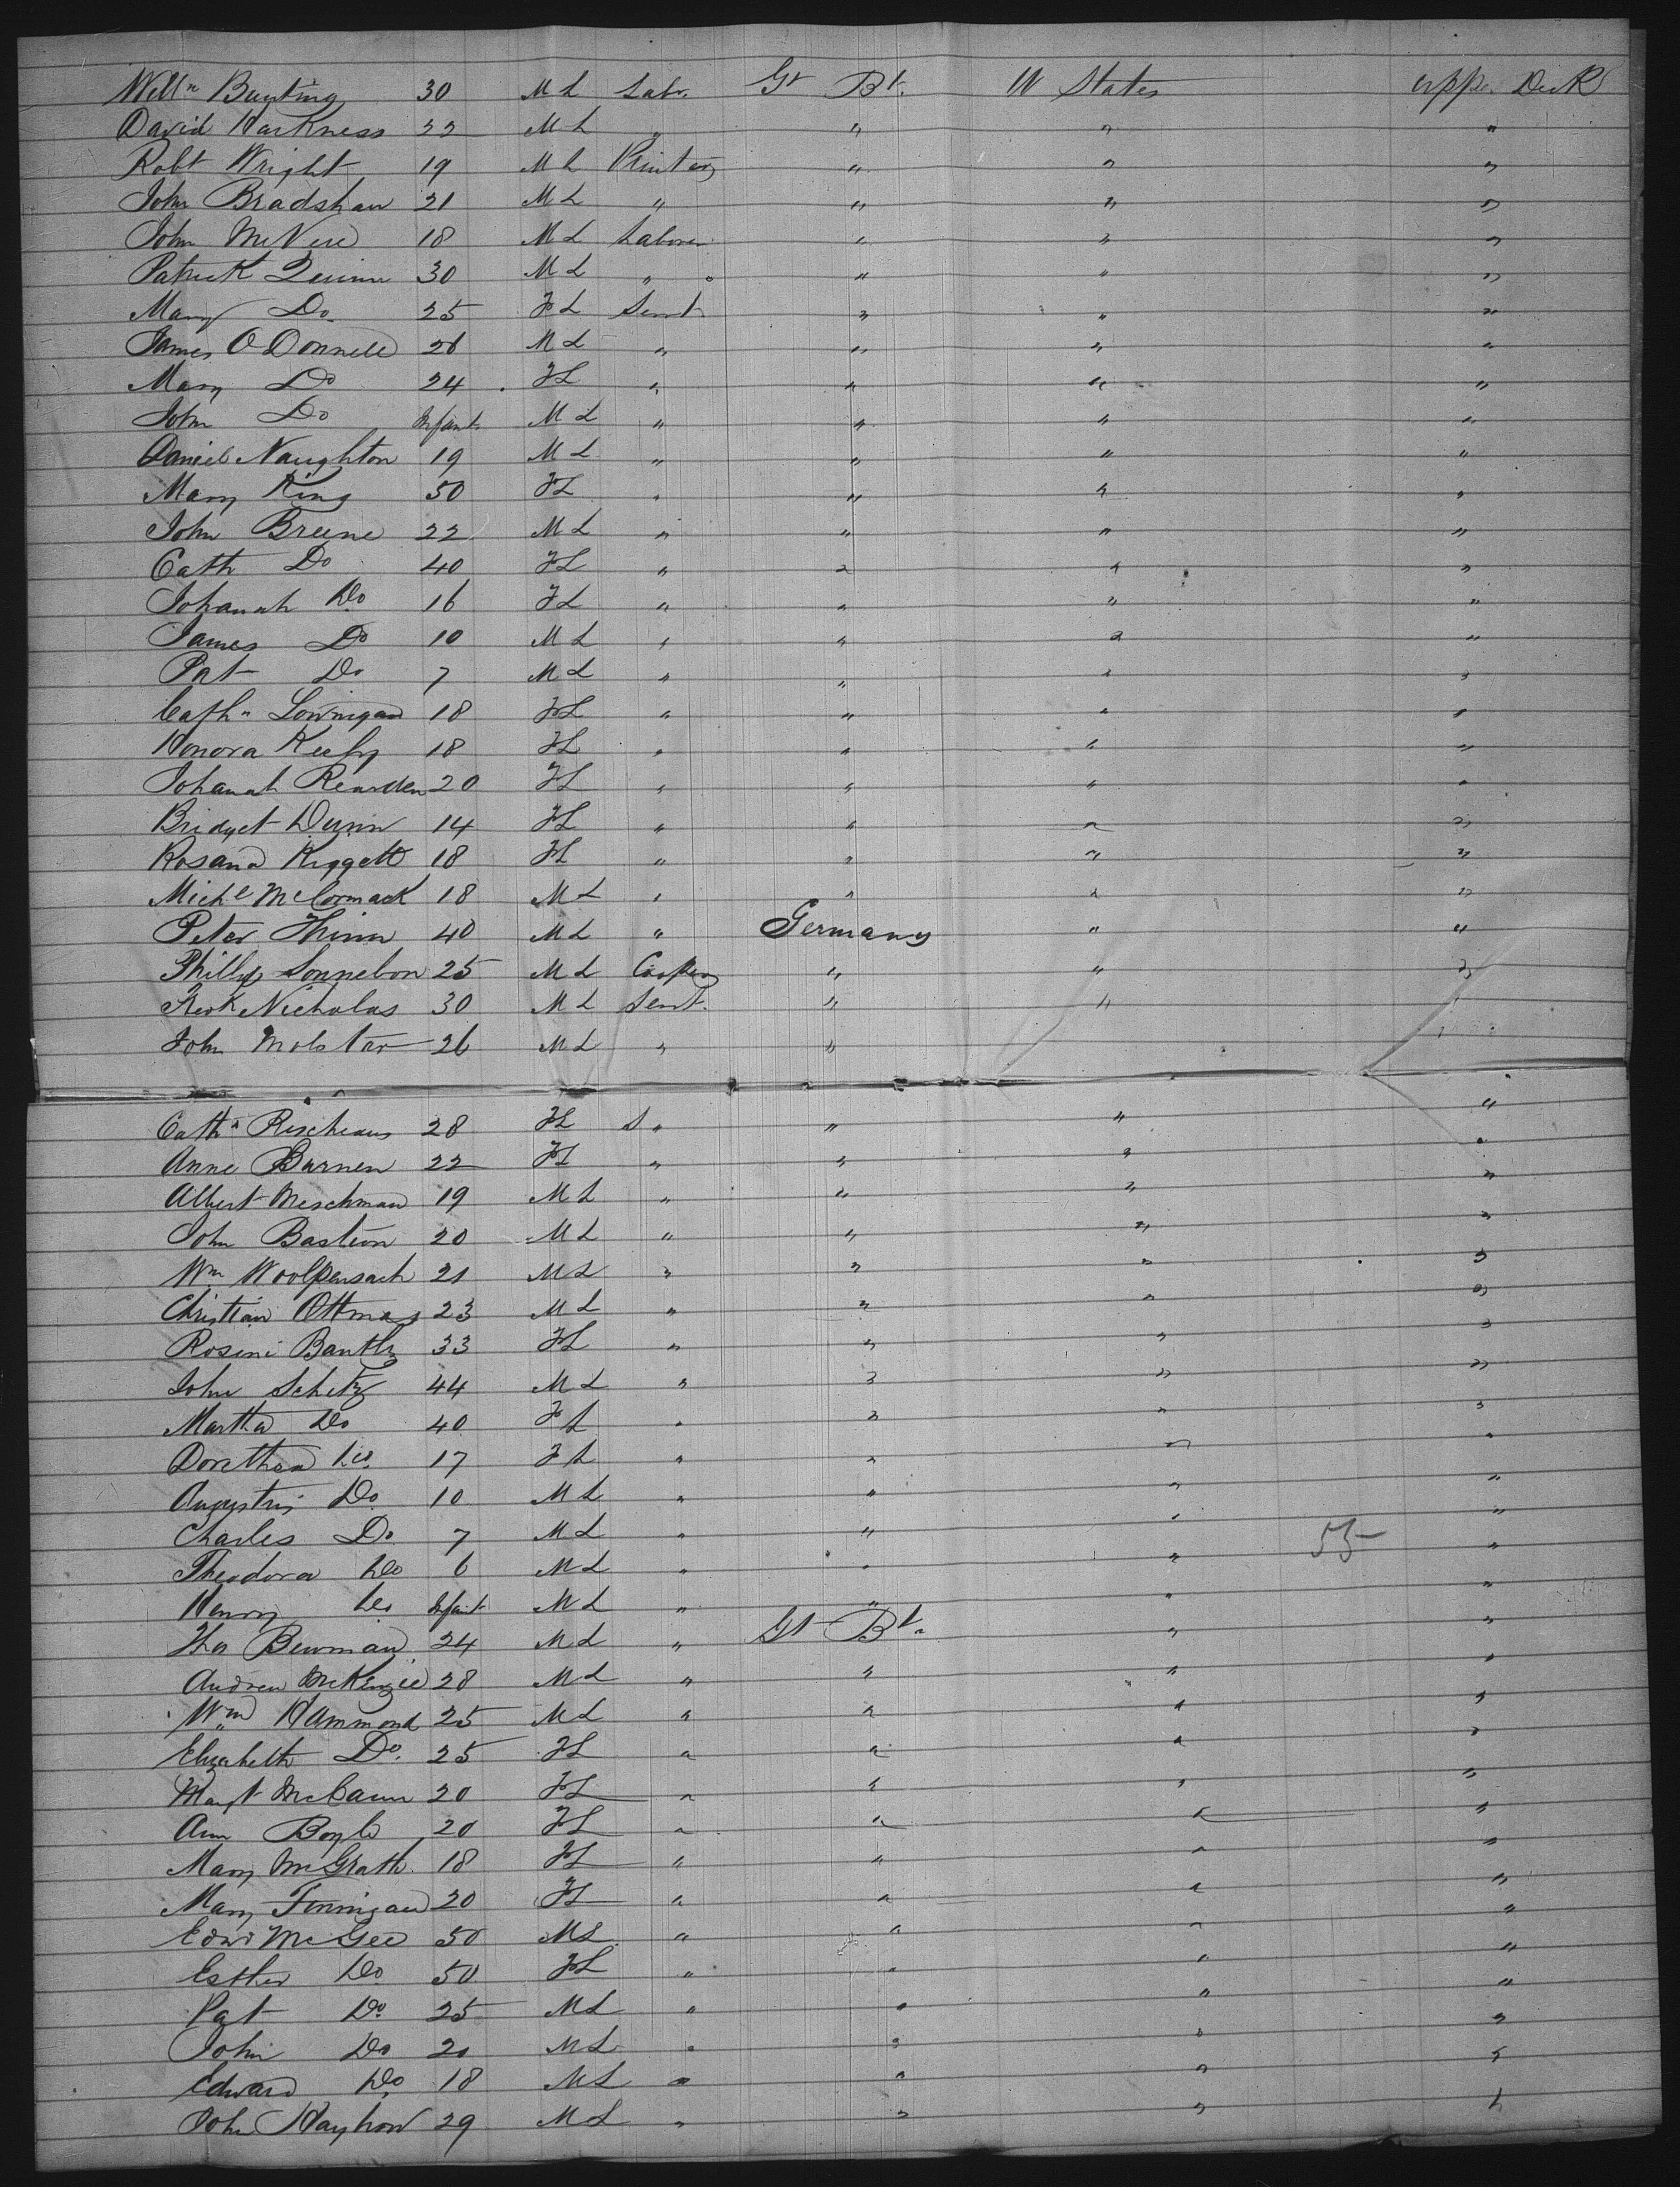 Willm Bunting 30 M L Labr. Gt Bt. U States upper Deck
David Harkness 22 M L " " " "
Robt Wright 19 M L Printer " " "
John Bradshaw 21 M L " " " "
John McVere 18 M L Laborer " " "
Patrick Quinn 30 M L " " " "
Mary Do. 25 F L Servt. " " "
James O Donnell 26 M L " " " "
Mary Do 24 F L " " " "
John Do Infant M L " " " "
Daniel Naughton 19 M L " " " "
Mary King 50 F L " " " "
John Breene 22 M L " " " "
Cath Do 40 F L " " " "
Johanah Do 16 F L " " " "
James Do 10 M L " " " "
Pat Do 7 M L " " " "
Cathn 18 F L " " " "
Honora 18 F L " " " "
Johanah Rearden 20 F L " " " "
Bridget Dunn 14 F L " " " "
Rosana Kiggett 18 F L " " " "
Michl McCormack 18 M L " " " "
Peter Thinn 40 M L " Germany " "
Phillip Sonnebon 25 M L " " "
Nicholas 30 M L Servt. " "
John Molstar 26 M L " "
Catha 28 F L S " " " "
Anne Barnen 22 F L " " " "
Albert Meschman 19 M L " " " "
John Bastion 20 M L " " " "
Wm Woolpensach 21 M L " " " "
Christian Ottmas 23 M L " " " "
Rosine Bantlz 33 F L " " " "
John Schitz 44 M L " " " "
Martha Do 40 F L " " " "
Dorethea Do 17 F L " " " "
Do 10 M L " " " "
Charles Do. 7 M L " " " " 55
Theodora Do 6 M L " " " "
Henry Do Infant M L " " " "
Thos Bowman 24 M L " Gt Bt. " "
Andrew McKenzie 28 M L " " " "
Wm Hammond 25 M L " " " "
Elizabeth Do. 25 F L " " " "
Margt McCann 20 F L " " " "
Ann Boyle 20 F L " " " "
Mary McGrath 18 F L " " " "
Mary Finnigan 20 F L " " " "
Edwd McGee 50 M L " " " "
Esther Do 50 F L " " " "
Pat Do 25 M L " " " "
John Do 20 M L " " " "
Edward Do 18 M L " " " "
John Hayhow 29 M L " " " "